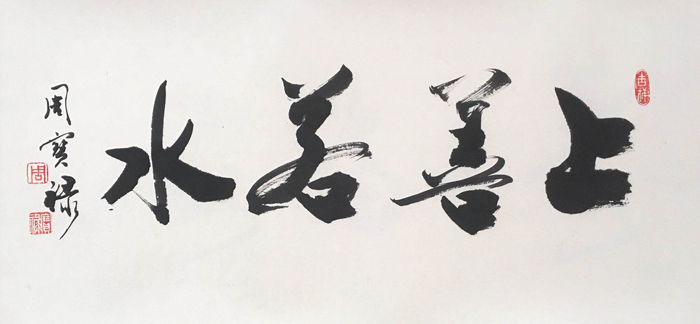 上善若水
周寶禄